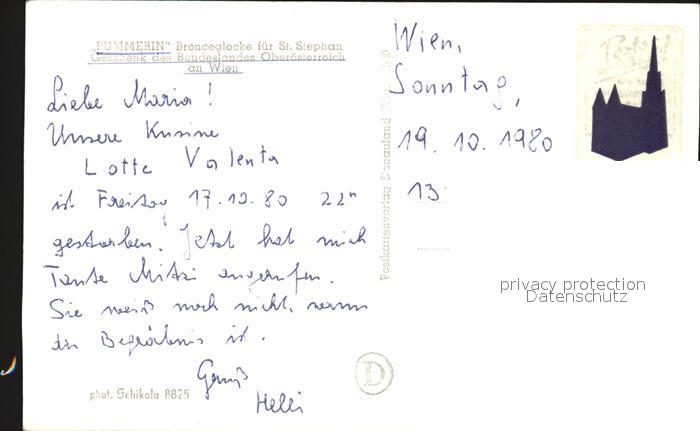 „PUMMERIN" Bronceglocke für St. Stephan
Geschenk des Bundeslandes Oberösterreich
an Wien
Liebe Maria!
Unsere Kusine
Lotte Valenta
ist Freitag 17.10.80 22ʰ
gestorben. Jetzt hat mich
Tante Mitzi angerufen.
Sie weiß noch nicht, wann
das Begräbnis ist.
Gruß
Helli
phot. Schikola 8825
Postkartenverlag Donauland
D
Wien,
Sonntag,
19. 10. 1980
13
privacy protection
Datenschutz